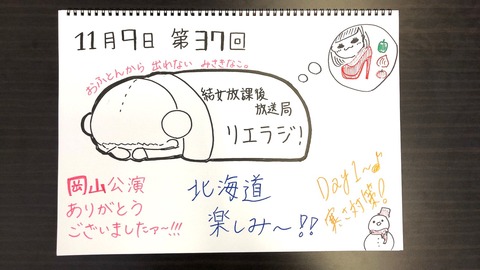 11月9日 第37回
おふとんから 出れない みさきなこ。
結女放課後
放送局
リエラジ!
岡山公演
ありがとう
ございましたァ~!!!
北海道
楽しみ~!!
Day1~♪
寒さ対策!